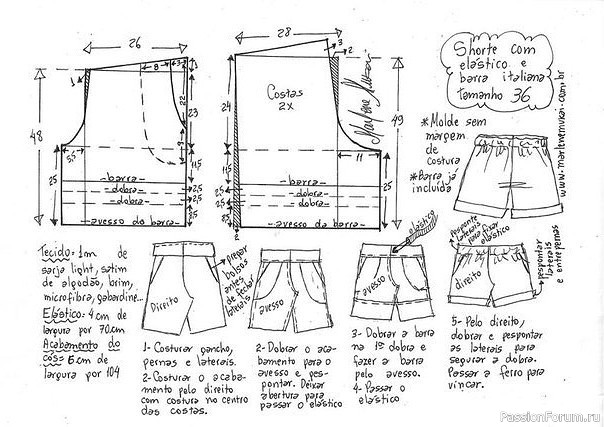 26
28
8
3
3
1
22
23
48
25
5,5
11,5
2,5
2,5
-barra-
-dobra-
-dobra-
-avesso da barra-
3
2
24
25
49
Costas
2X
Marlene Mukai
11
11,5
2,5
2,5
8,5
2
-barra-
-dobra-
-dobra-
-avesso da barra-
Shorte com
elástico e
barra italiana
tamanho 36
www.marlenemukai.com.br
*Molde sem
margem
de
costura
*Barra já
incluída
Tecido: 1m de
sarja light, satim
de algodão, brim,
microfibra, gabardine...
Elástico: 4 cm de
largura por 70cm
Acabamento do
cós: 6 cm de
largura por 104
Direito
pregar
bolsos
antes
de fechar
laterais
1- Costurar gancho,
pernas e laterais.
2- Costurar o acaba-
mento pelo direito
com costura no centro
das costas.
avesso
2- Dobrar o aca-
bamento para o
avesso e pes-
pontar. Deixar
abertura para
passar o elástico
elástico
avesso
3- Dobrar a barra
na 1ª dobra e
fazer a barra
pelo avesso.
4- Passar o
elástico
pesponte
laterais
para fixar
elástico
direito
pespontar
laterais
e entrepernas
5- Pelo direito,
dobrar e pespontar
as laterais para
segurar a dobra.
Passar a ferro para
vincar.
PassionForum.ru